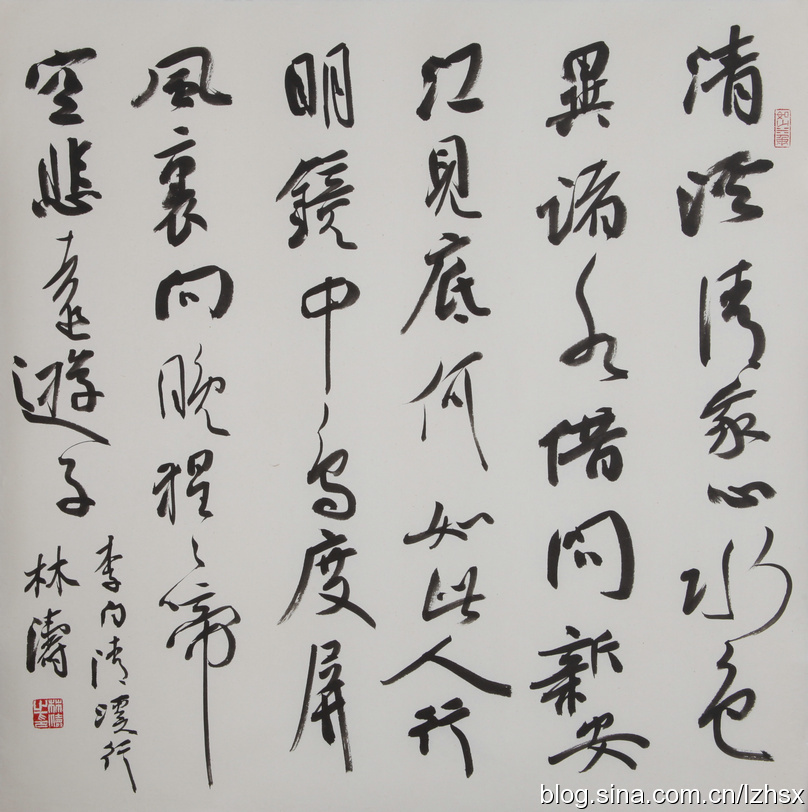 清溪清我心水色
異諸水借問新安
江見底何如此人行
明鏡中鳥度屏
風裏向晚猩々啼
空悲遠遊子
李白清溪行
林濤
blog.sina.com.cn/lzhsx